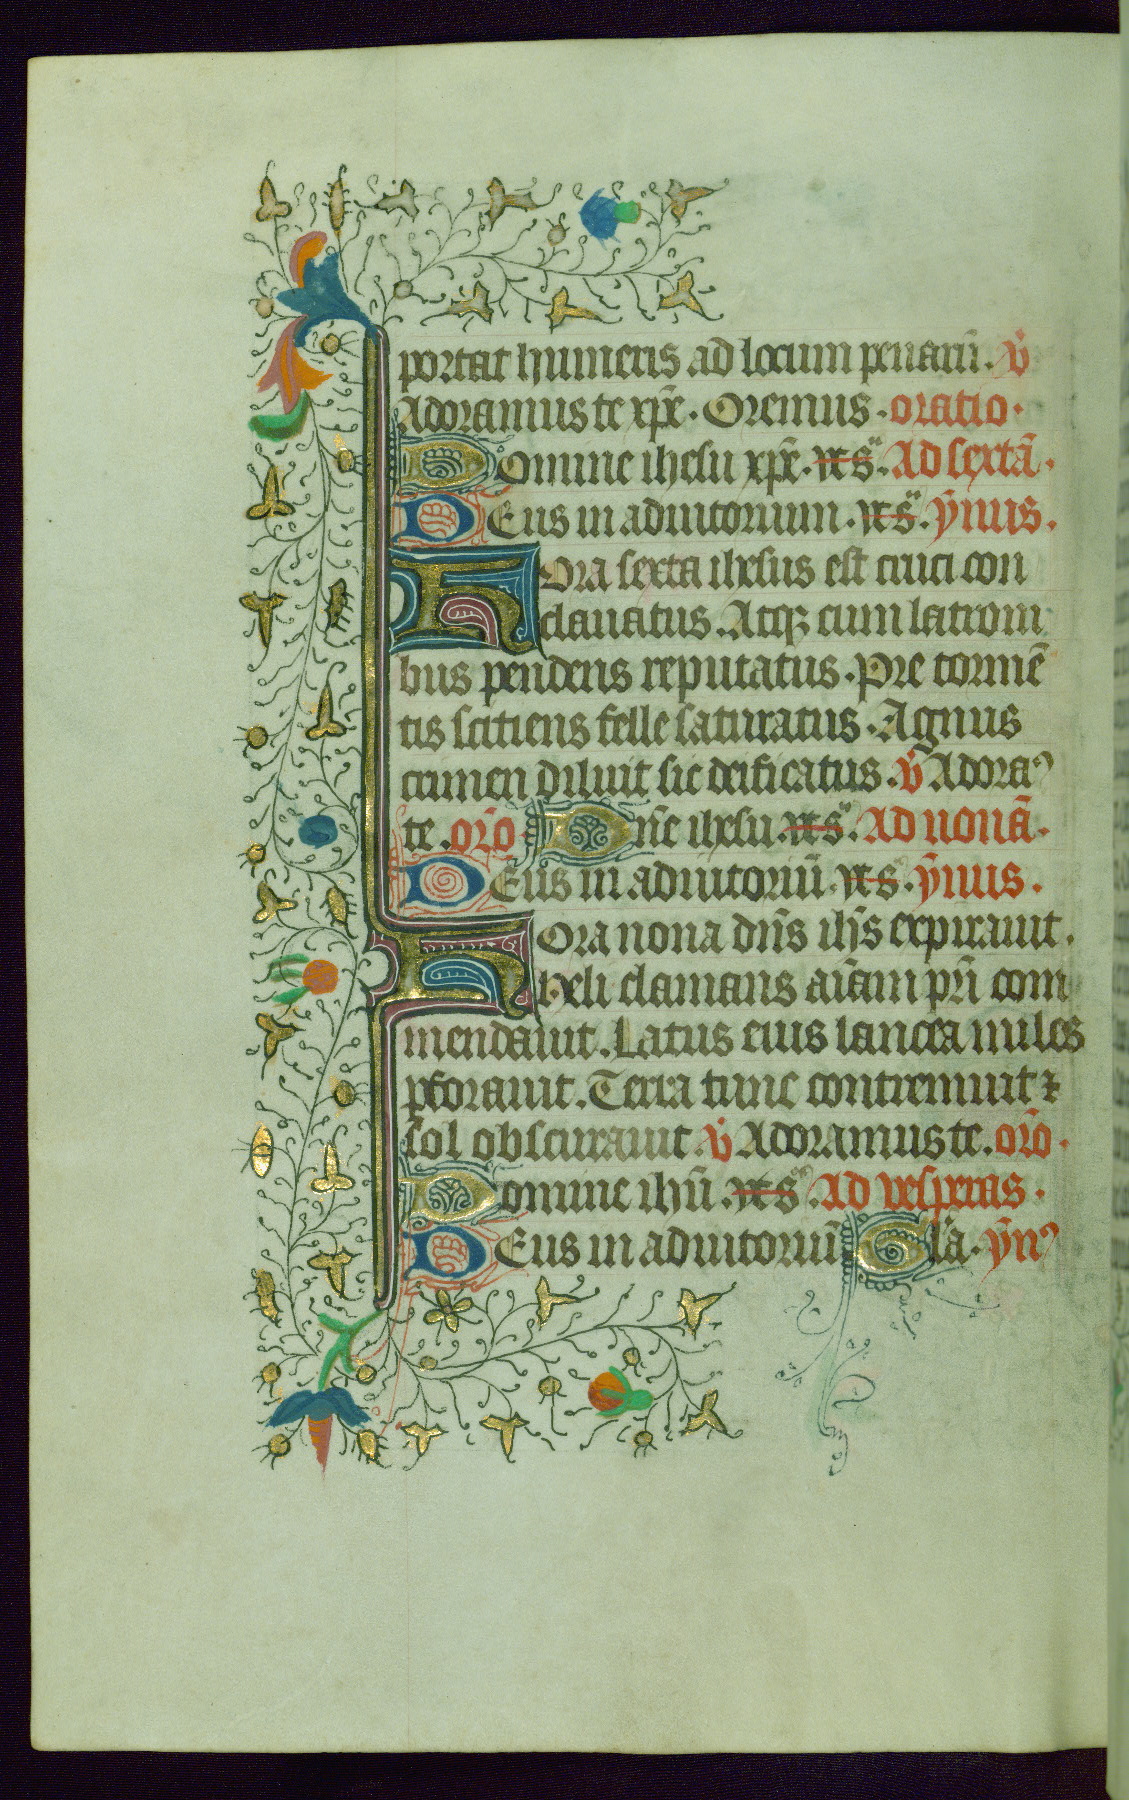 portat humeris ad locum penarū. v̄
Adoramus te xp̄e. Oremus. oratio.
Domine ihesu xp̄e. Ad sextā.
Deus in adiutorium. ȳmus.
Hora sexta ihesus est cruci con
clauatus. Atq₃ cum latroni
bus pendens reputatus. Pre tormē
tis scitiens felle saturatus. Agnus
crimen diluit sic deificatus. v̄ Adoraꝰ
te. orō Dn̄e ihesu. Ad nonā.
Deus in adiutoriū. ȳmus.
Hora nona dn̄s ih̄s expirauit.
Hely clamans aīam pr̄i com
mendauit. Latus eius lancea miles
pforauit. Terra tunc contremuit ⁊
sol obscurauit. v̄ Adoramus te. orō.
Domine ihū. Ad vesperas.
Deus in adiutoriū Gla. ȳnꝰ